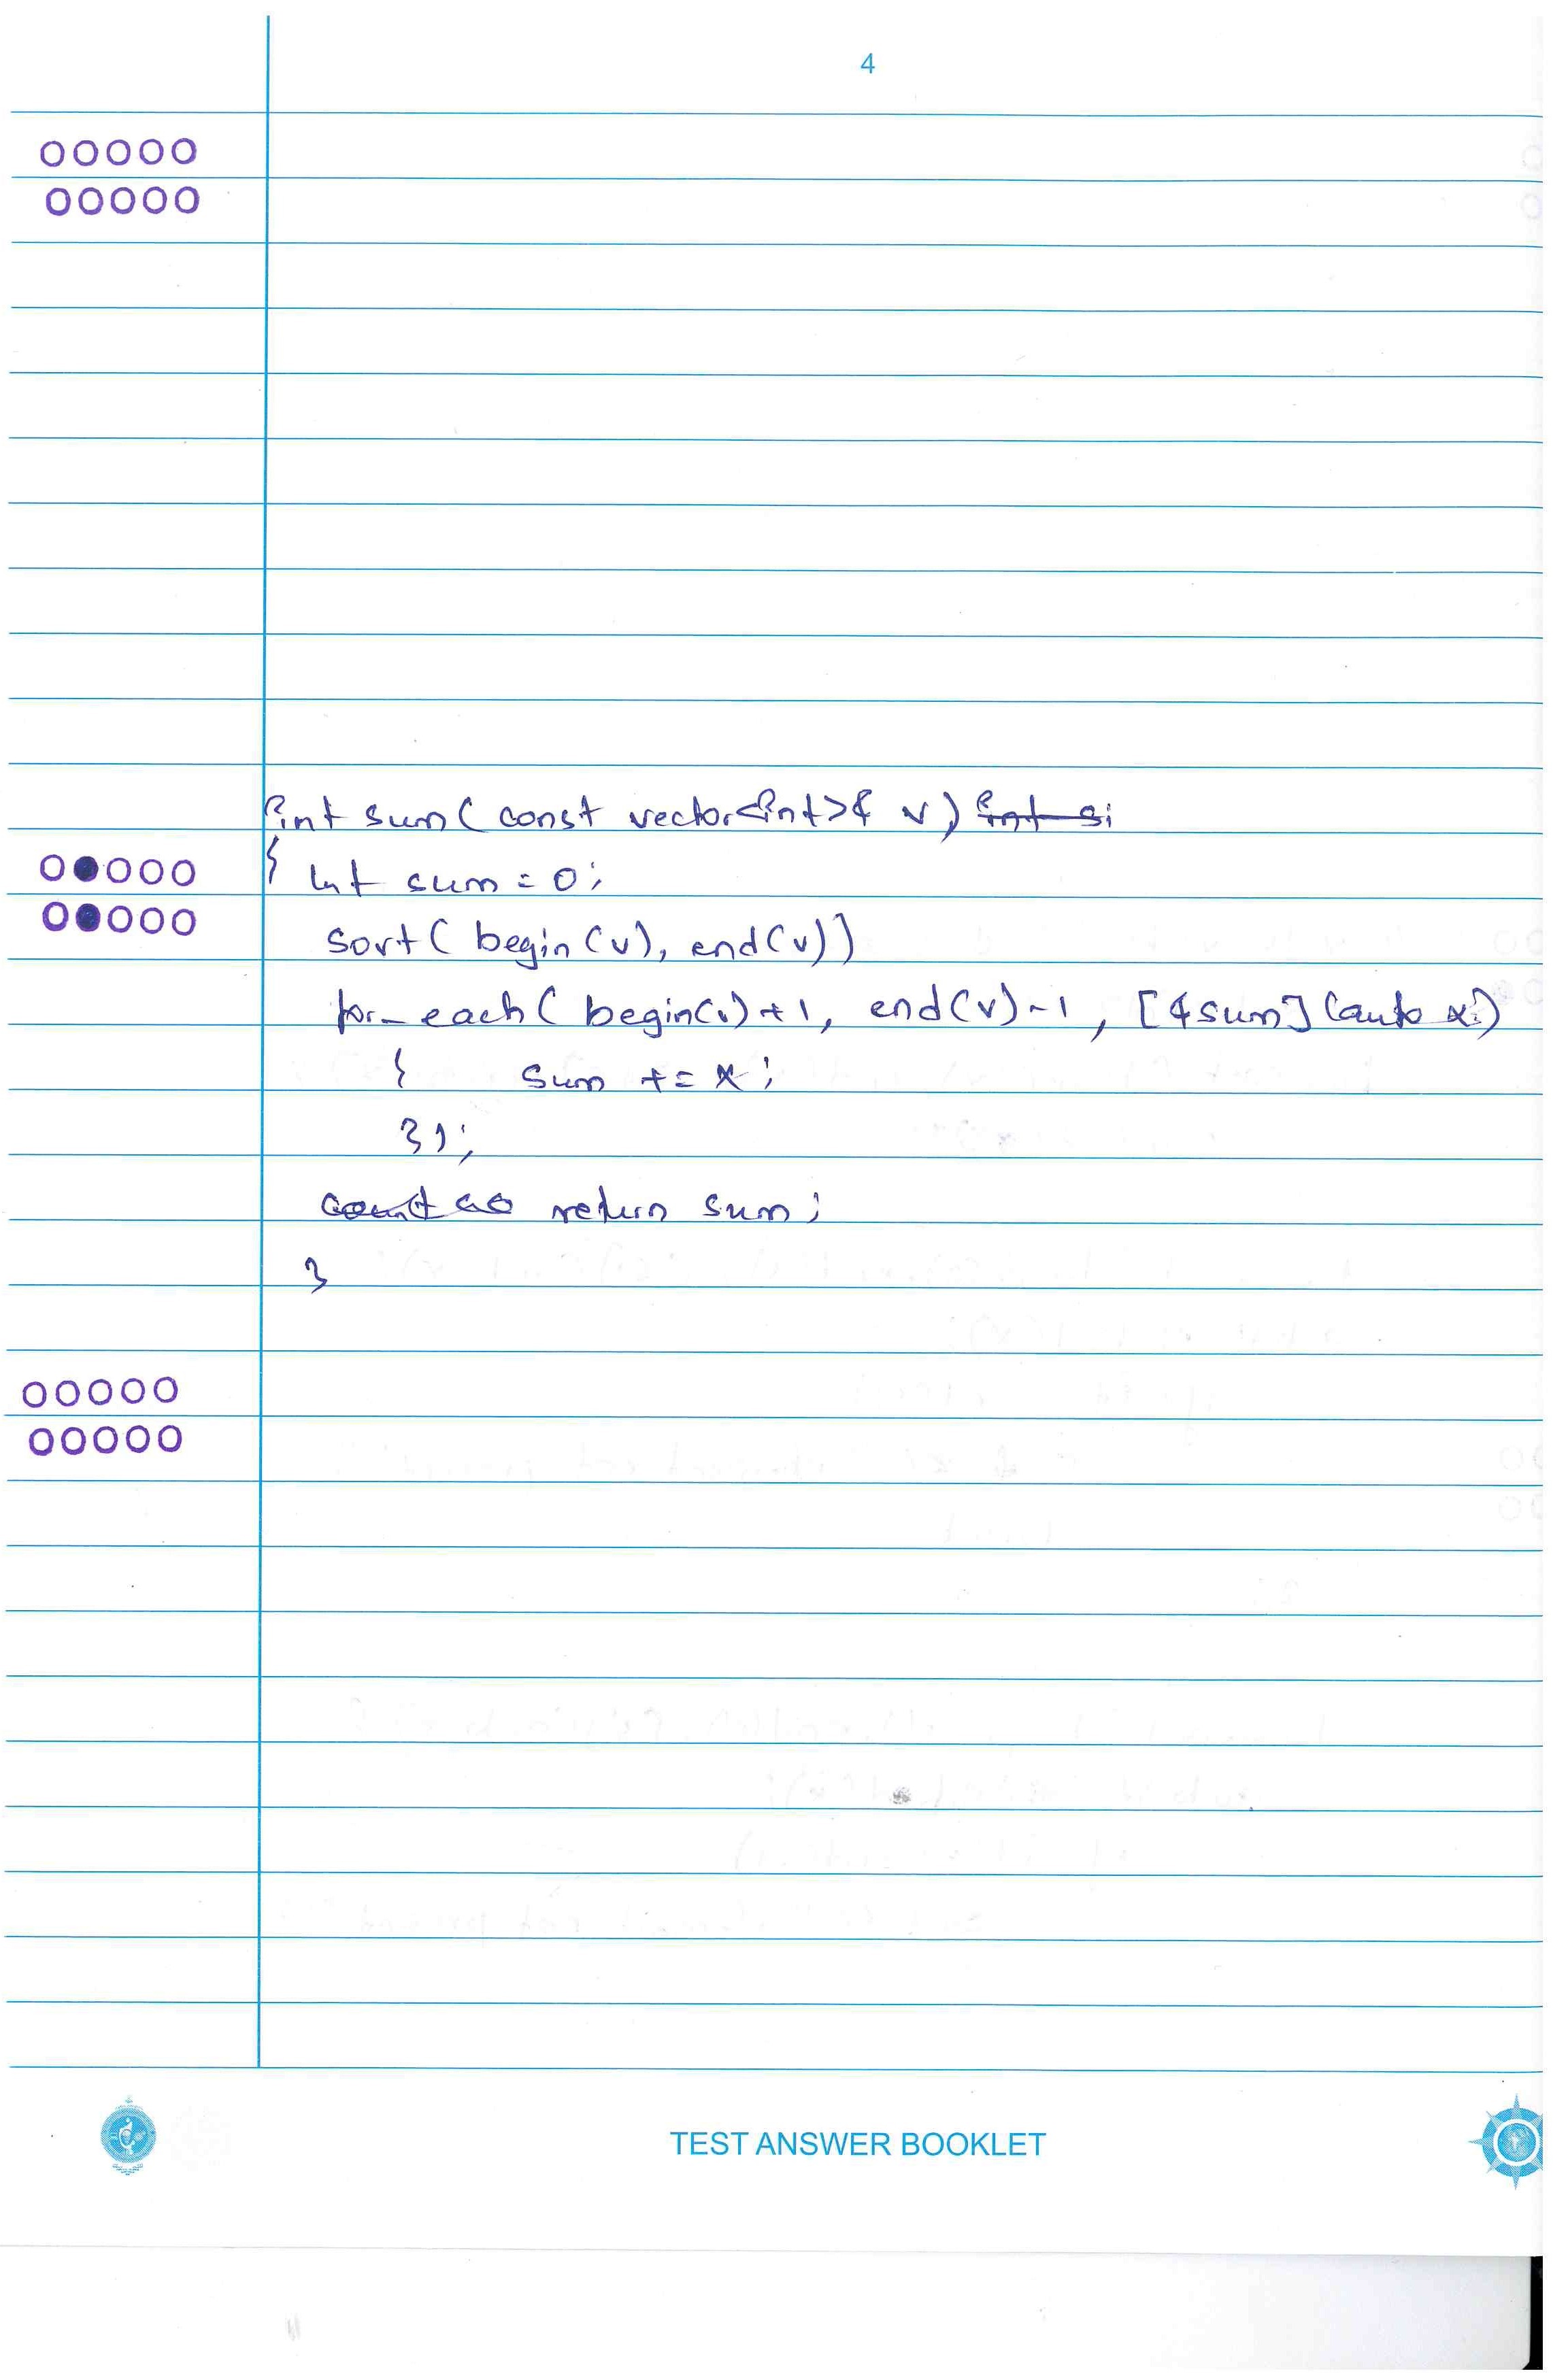 4
int sum( const vector<int>& v) int si
{ int sum = 0;
sort( begin(v), end(v))
for_each( begin(v)+1, end(v)-1, [&sum] (auto x)
{ sum += x;
});
return sum;
}
TEST ANSWER BOOKLET